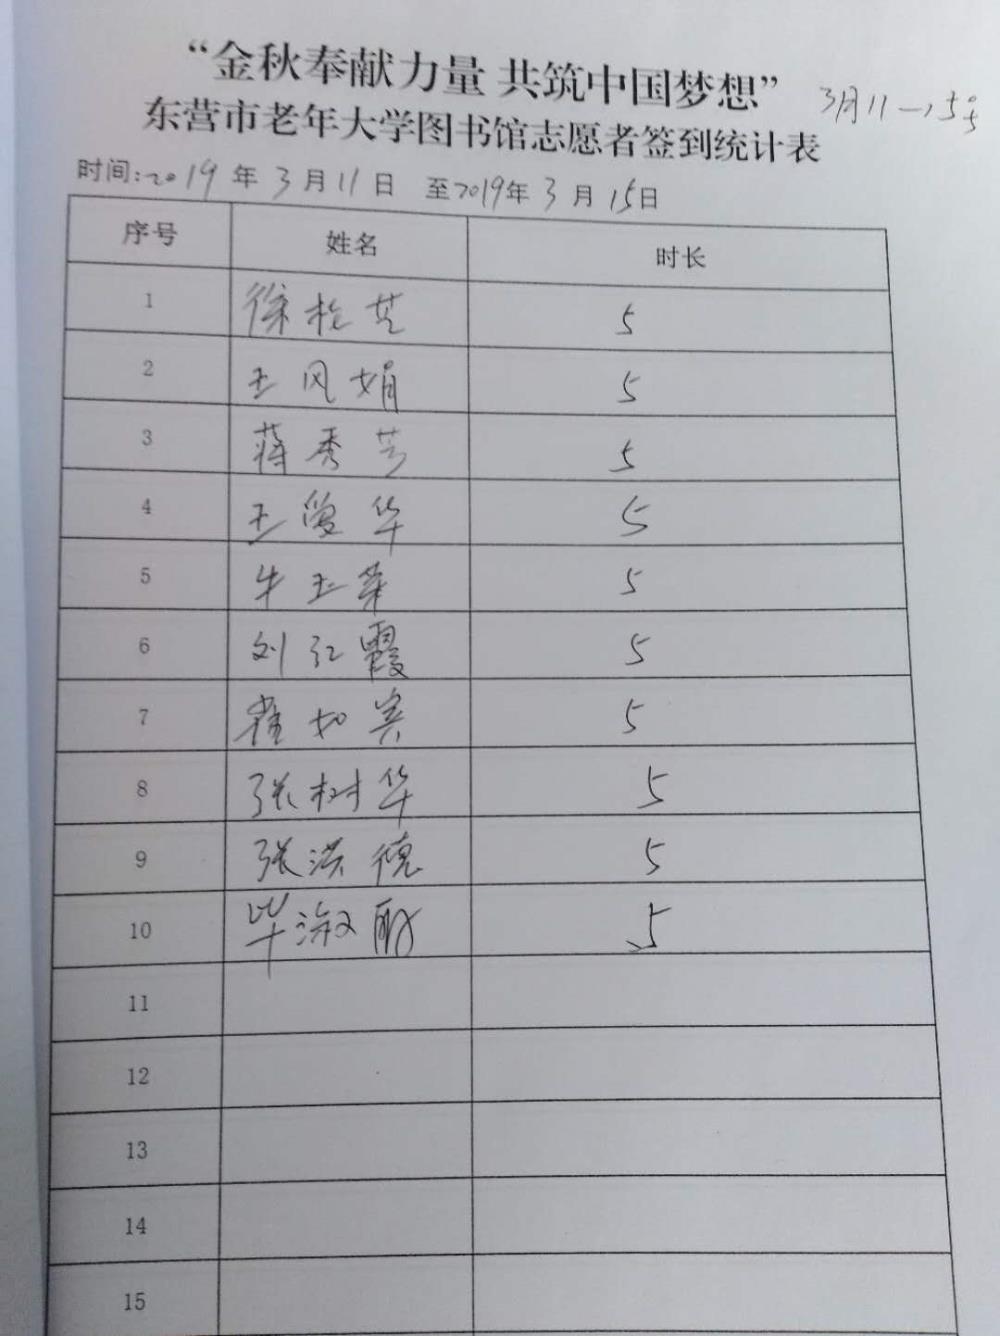 “金秋奉献力量 共筑中国梦想”
3月11—15号
东营市老年大学图书馆志愿者签到统计表
时间:2019年3月11日 至2019年3月15日
序号 姓名 时长
1 徐松芝 5
2 王风娟 5
3 蒋秀芝 5
4 王爱华 5
5 牛玉华 5
6 刘红霞 5
7 5
8 张树华 5
9 张洪德 5
10 毕淑丽 5
11
12
13
14
15